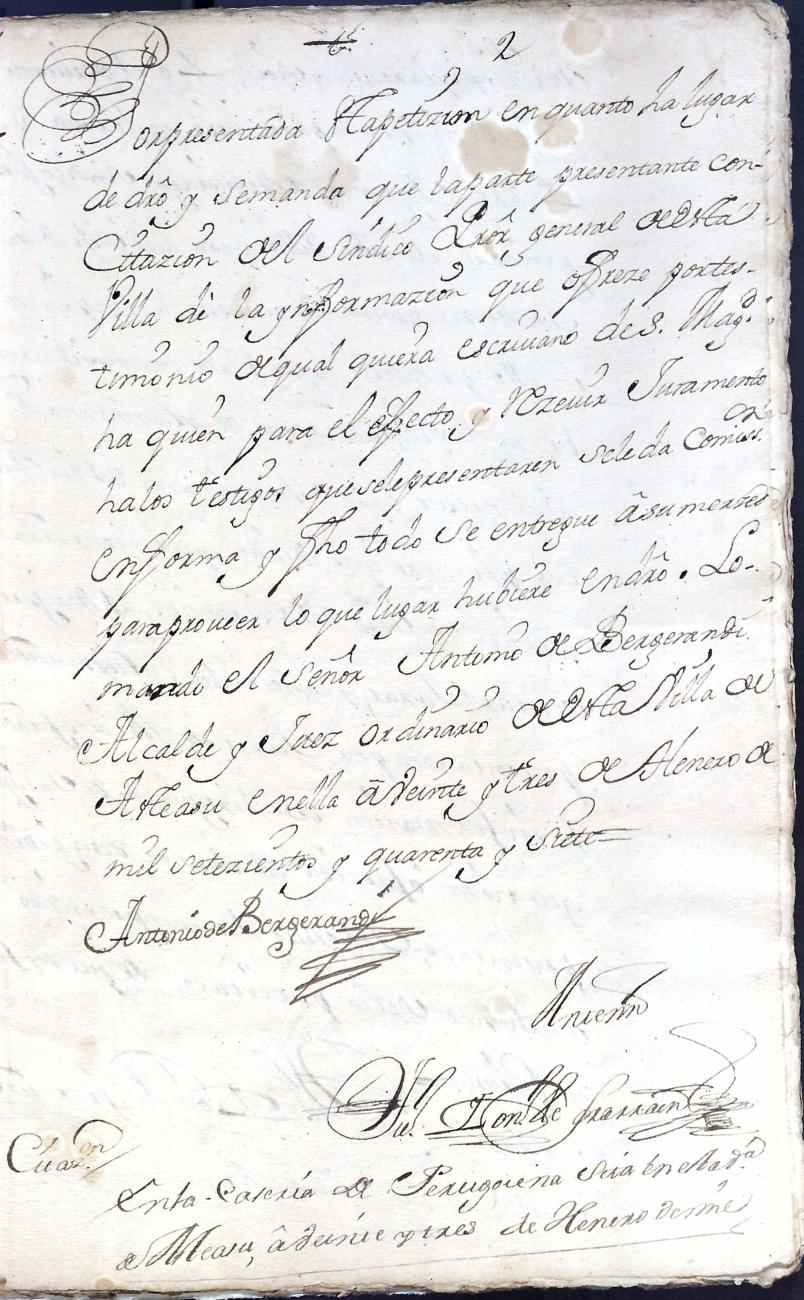 2
Por presentada la petizion en quanto ha lugar
de drô y se manda que la parte presentante con
Cittazion del Sindico Pror general de esta
Villa dê la ynformazion que ofreze por tes-
timonio de qual quiera escrivano de S. Magd.
ha quien para el efecto y rrezevir Juramento
ha los testigos que se le presentaren se le da Comiss.on
en forma y fho todo se entregue â su merzed
para proveer lo que lugar hubiere en drô. Lo
mando el Señor Antonio de Bergerandi
Alcalde y Juez ordinario de esta Villa de
Asteasu en ella â veinte y tres de Henero de
mil setezientos y quarenta y siete
Antonio de Bergerandi
Ante mi
Citaz.on
En la Caseria de Perugorena sita en esta v.a
de Asteasu, â veinte y tres de Henero de mil